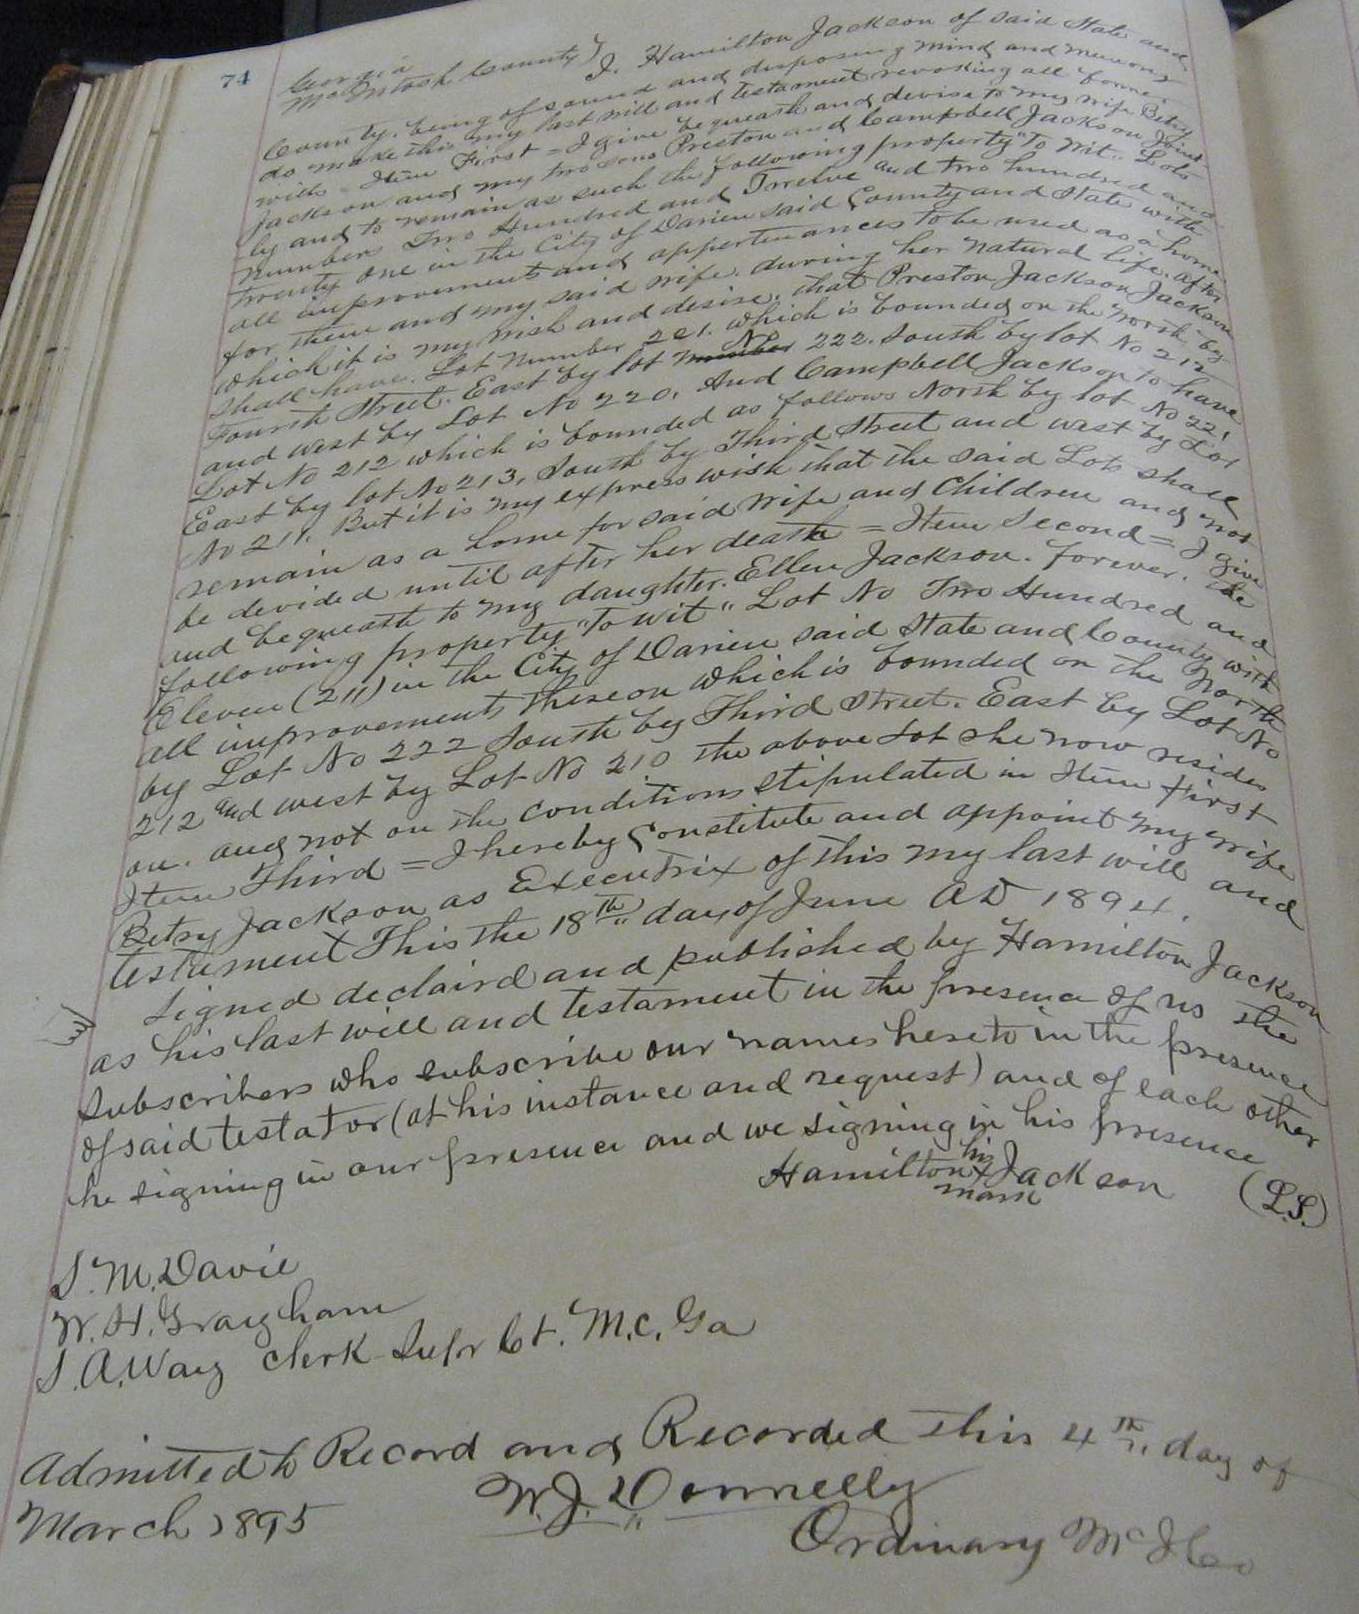 74
Georgia
McIntosh County } I. Hamilton Jackson of said State and
County, being of sound and disposing mind and memory
do make this my last will and testament revoking all former
wills = Item First = I give bequeath and devise to my wife Betsy
Jackson and my two sons Preston and Campbell Jackson Joint-
ly and to remain as such the following property "To Wit" Lots
numbers Two Hundred and Twelve and two hundred and
Twenty one in the City of Darien said County and State with
all improvements and appertenances to be used as a home
for them and my said wife. during her natural life. after
which it is my wish and desire. that Preston Jackson Jackson
shall have. Lot Number 221. which is bounded on the North by
Fourth Street. East by lot number No 222. South by lot No 212
and west by Lot No 220, And Campbell Jackson to have
Lot No 212 which is bounded as follows North by lot No 221
East by lot No 213, South by Third Street and west by Lot
No 211. But it is my express wish that the said Lots shall
remain as a home for said Wife and Children and not
be devided until after her death = Item Second = I give
and bequeath to my daughter. Ellen Jackson. forever. the
following property "To wit" Lot No Two Hundred and
Eleven (211) in the City of Darien said State and County with
all improvements thereon which is bounded on the North
by Lot No 222 South by Third Street. East by Lot No
212 and west by Lot No 210 the above Lot she now resides
on. and not on the conditions stipulated in Item first
Item Third = I hereby Constitute and appoint my wife
Betsy Jackson as Executrix of this my last will and
testament This the 18th day of June AD 1894.
Signed declaird and published by Hamilton Jackson
as his last will and testament in the presence of us the
subscribers who subscribe our names hereto in the presence
of said testator (at his instance and request) and of each other
he signing in our presence and we signing in his presence
his
Hamilton X Jackson (L.S.)
mark
S. M. Davie
W. H.
S. A. Way Clerk Supr Ct. M.C. Ga
Admitted to Record and Recorded This 4th day of
March 1895
W. J. Donnelly
Ordinary McI Co